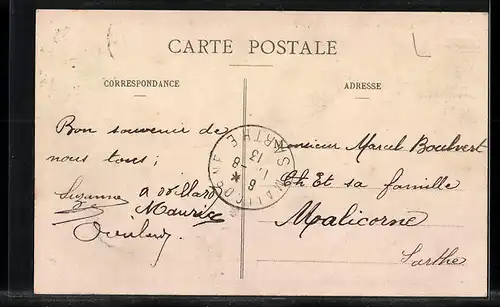 CARTE POSTALE
CORRESPONDANCE
ADRESSE
Bon souvenir de
nous tous;
Suzanne
Maurice
MALICORNE SARTHE
8
13
Monsieur Marcel Boulvert
et sa famille
Malicorne
Sarthe